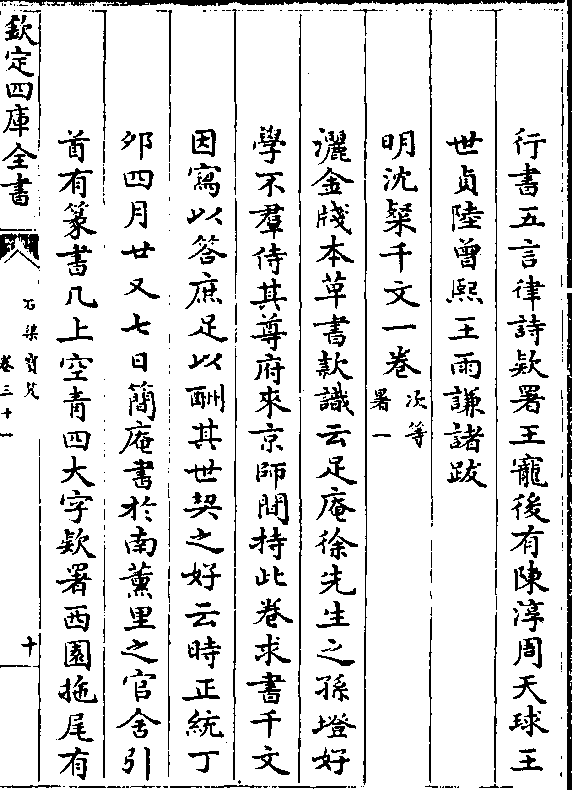 行書五言律詩欵署王寵後有陳淳周天球王
世貞陸曾熙王雨謙諸跋
明沈粲千文一卷 次等署一
灑金牋本草書款識云足庵徐先生之孫墱好
學不羣侍其尊府來京師間持此卷求書千文
因寫以答庶足以酬其世契之好云時正統丁
夘四月廿又七日簡庵書於南薫里之官舍引
首有篆書几上空青四大字欵署西園拖尾有
欽定四庫全書
石渠寳笈
卷三十一
十